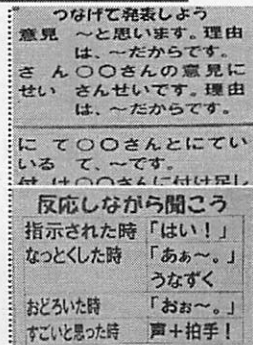 つなげて発表しよう
意見 ～と思います。理由
は、～だからです。
さん ○○さんの意見に
せい さんせいです。理由
は、～だからです。
にて ○○さんとにてい
いる て、～です。
付け ○○さんに付け足し
反応しながら聞こう
指示された時 「はい！」
なっとくした時 「あぁ～。」
うなずく
おどろいた時 「おぉ～。」
すごいと思った時 声＋拍手！